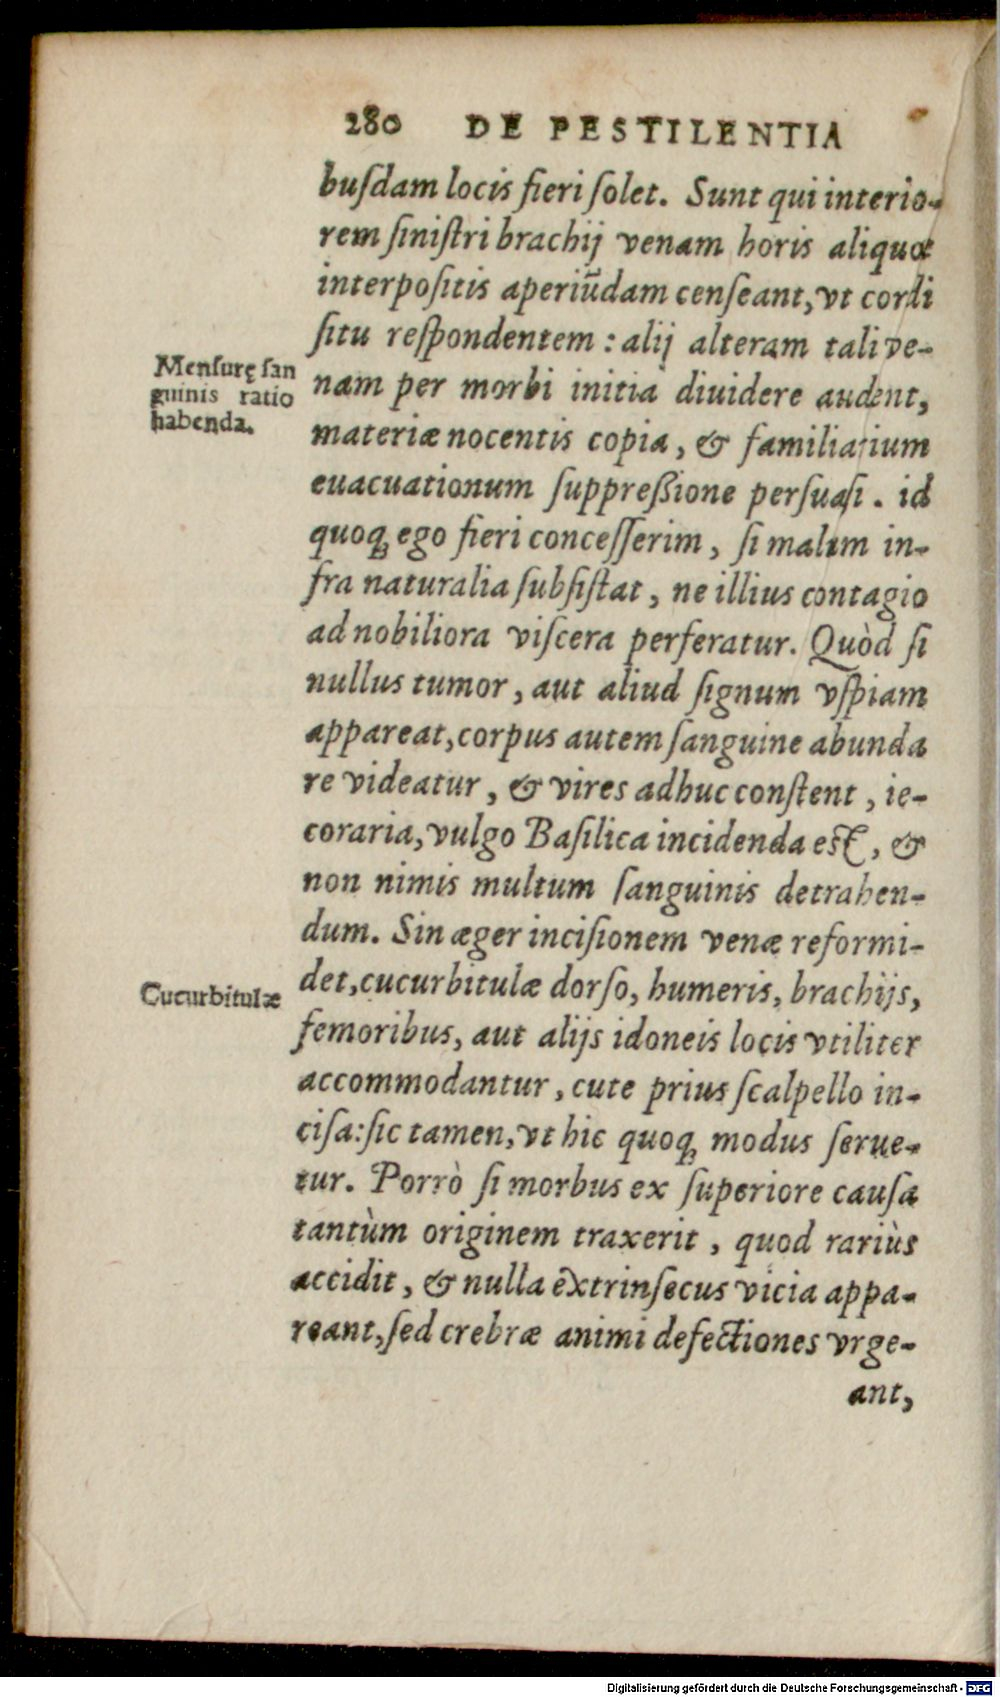 280 DE PESTILENTIA
buſdam locis fieri ſolet. Sunt qui interio-
rem ſiniſtri brachij venam horis aliquot
interpoſitis aperiūdam cenſeant, vt cordi
ſitu reſpondentem : alij alteram tali ve-
Menſurę ſan
guinis ratio
habenda.
nam per morbi initia diuidere audent,
materiæ nocentis copia, & familiarium
euacuationum ſuppreßione perſuaſi. id
quoq; ego fieri conceſſerim, ſi malum in-
fra naturalia ſubſiſtat, ne illius contagio
ad nobiliora viſcera perferatur. Quòd ſi
nullus tumor, aut aliud ſignum vſpiam
appareat, corpus autem ſanguine abunda
re videatur, & vires adhuc conſtent, ie-
coraria, vulgo Baſilica incidenda eſt, &
non nimis multum ſanguinis detrahen-
dum. Sin æger inciſionem venæ reformi-
Cucurbitulæ
det, cucurbitulæ dorſo, humeris, brachijs,
femoribus, aut alijs idoneis locis vtiliter
accommodantur, cute prius ſcalpello in-
ciſa: ſic tamen, vt hic quoq; modus ſerue-
tur. Porrò ſi morbus ex ſuperiore cauſa
tantùm originem traxerit, quod rariùs
accidit, & nulla extrinſecus vicia appa-
reant, ſed crebræ animi defectiones vrge-
ant,
Digitalisierung gefördert durch die Deutsche Forschungsgemeinschaft - DFG